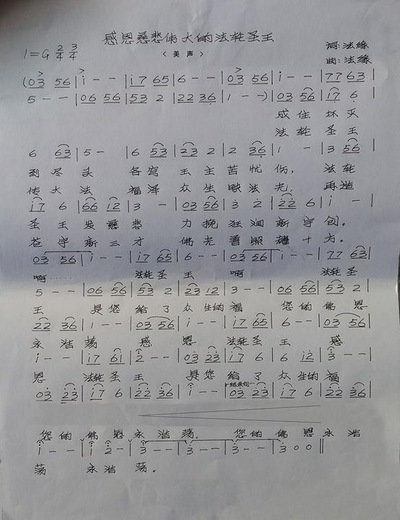 感恩慈悲伟大的法轮圣王
1=G 2/4 3/4 (美声) 词:法缘
曲:法缘
(03 56 | i - - | i7 65 | 6 - - | 03 56 | i - - | 77 63 |
5 - - | 06 56 | 53 2 | 22 36 | 1 - - ) | 03 56 | i7 6 |
成住坏灭
法轮圣王
6 63 | 5 - | 6 53 | 23 2 | 2 36 | 1 - | 3 56 |
到尽头 各宫王主苦忧伤, 法轮
传大法 福泽众生 法光, 再造
i7 6 | 66 12 | 3 - | 03 56 | 3 2 | 22 6 | i - |
圣王发慈悲 力挽狂澜新宇创。
苍宇新三才 佛光普照耀十方。
03 56 | i - - | i7 65 | 6 - - | 03 56 | i - - | 77 63 |
啊 法轮圣王 啊 法轮圣
5 - - | 06 56 | 53 2 | 23 12 | 3 - - | 06 56 | 53 2 |
王 是您给了众生的福 您的佛恩
22 36 | 1 - - | 03 56 | i - - | i7 65 | 6 - - | 03 56 |
永浩荡 感恩 法轮圣王 感
i - - | i7 61 | 2 - - | 03 23 | i7 6 | 6 12 | 3 - - |
恩 法轮圣王 是您给了众生的福
03 23 | i7 6 | 22 36 | i - - | 03 23 | i7 6 | 22 36 |
您的佛恩永浩荡, 您的佛恩永浩
i - - | i 2 - | 3 - - | 3 - - | 3 - - | 3 0 0 ||
荡 永浩荡。